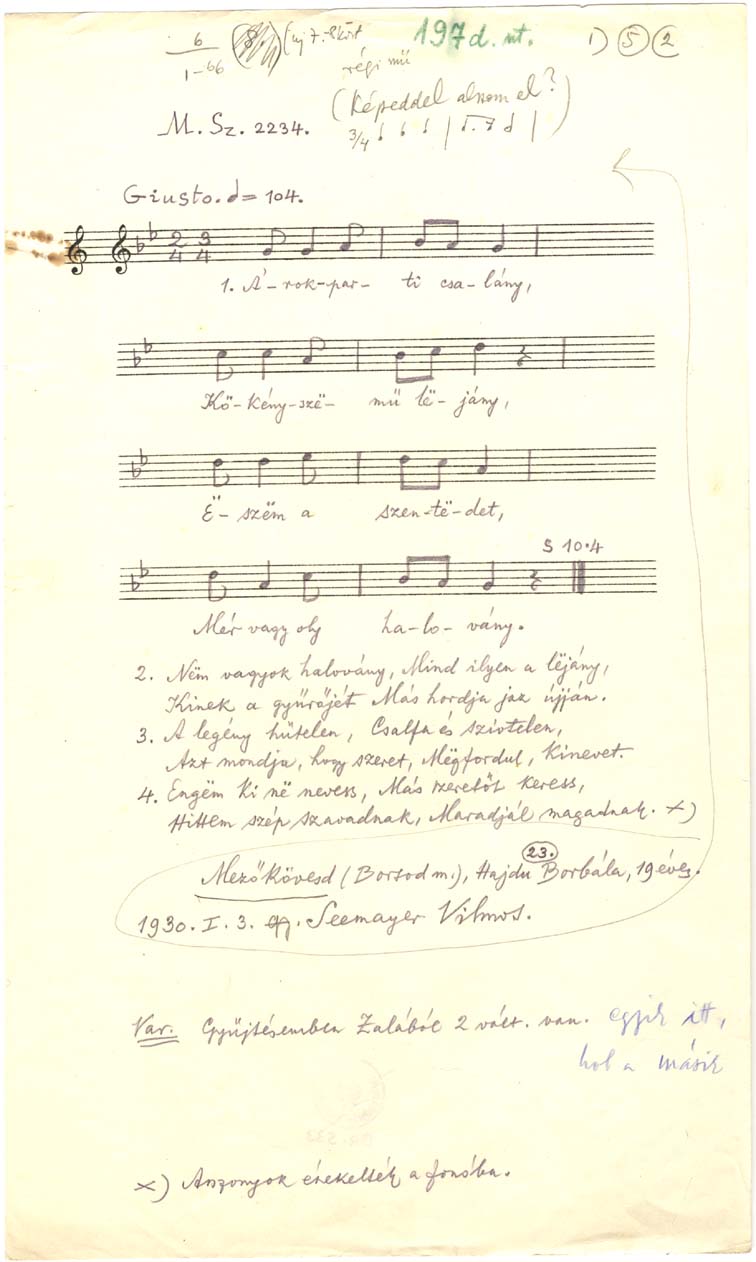 6
1-66
(új 7.
197d. nt.
1) 5 2
régi mű
(Képeddel alszom el?)
3/4
M. Sz. 2234.
Giusto. = 104.
2 3
4 4
1. Á-rok-par- ti csa-lány,
Kö-kény-szë- mü lë-jány,
Ë-szëm a szen-të-det,
S 10.4
Mér vagy oly ha-lo-vány.
2. Nëm vagyok halovány, Mind ilyen a lëjány,
Kinek a gyűrőjét Más hordja jaz újján.
3. A legény hűtelen, Csalfa és szívtelen,
Azt mondja, hogy szeret, Mëgfordul, kinevet.
4. Engëm ki në nevess, Más szeretőt keress,
Hittem szép szavadnak, Maradjál magadnak. x)
23.
Mezőkövesd (Borsod m.), Hajdu Borbála, 19 éves.
1930. I. 3. gy. Seemayer Vilmos.
Var. Gyűjtésemben Zalából 2 vált. van. egyik itt,
hol a másik
x) Asszonyok énekelték a fonóba.